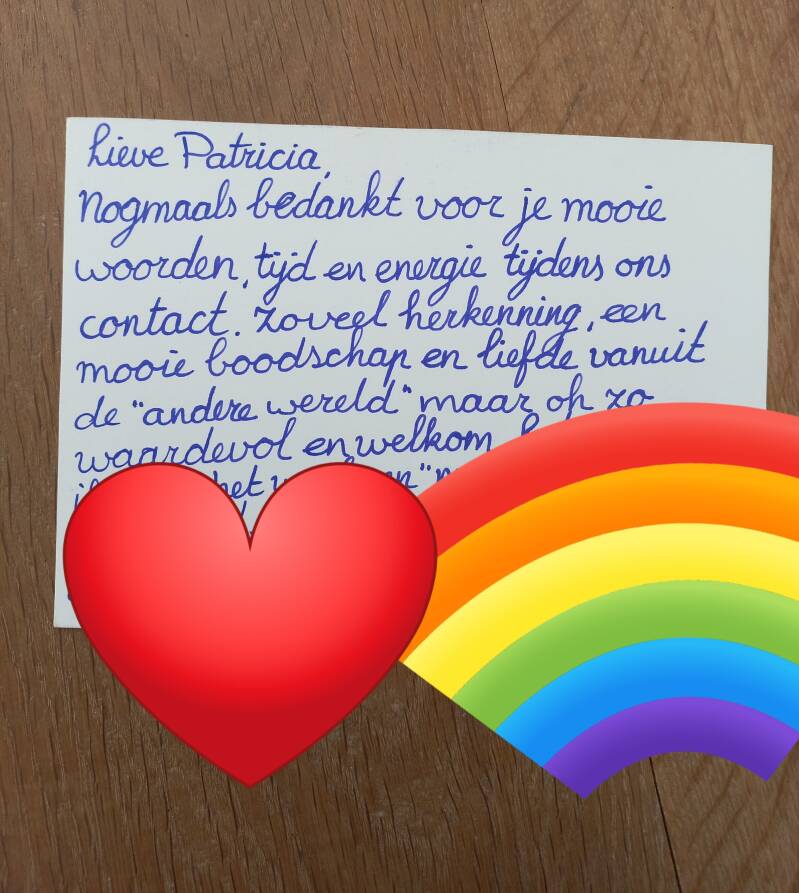 Lieve Patricia,
Nogmaals bedankt voor je mooie
woorden, tijd en energie tijdens ons
contact. Zoveel herkenning, een
mooie boodschap en liefde vanuit
de "andere wereld" maar oh zo
waardevol en welkom.
het